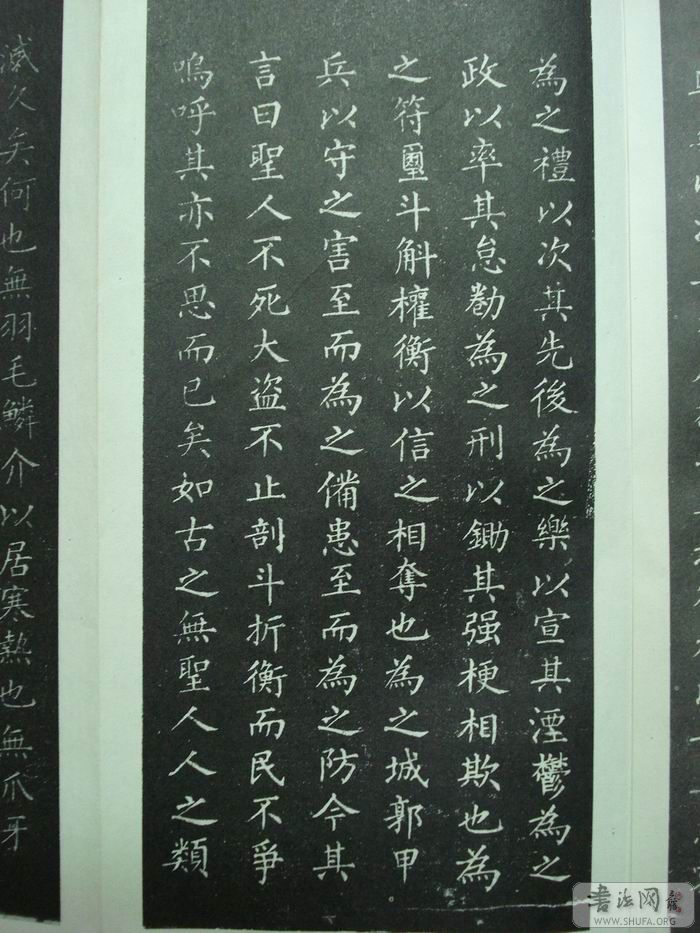 為之禮以次其先後為之樂以宣其湮鬱為之
政以率其怠勌為之刑以鋤其强梗相欺也為
之符璽斗斛權衡以信之相奪也為之城郭甲
兵以守之害至而為之備患至而為之防今其
言曰聖人不死大盗不止剖斗折衡而民不爭
嗚呼其亦不思而已矣如古之無聖人人之類
滅久矣何也無羽毛鱗介以居寒熱也無爪牙
書法网
WWW.SHUFA.ORG